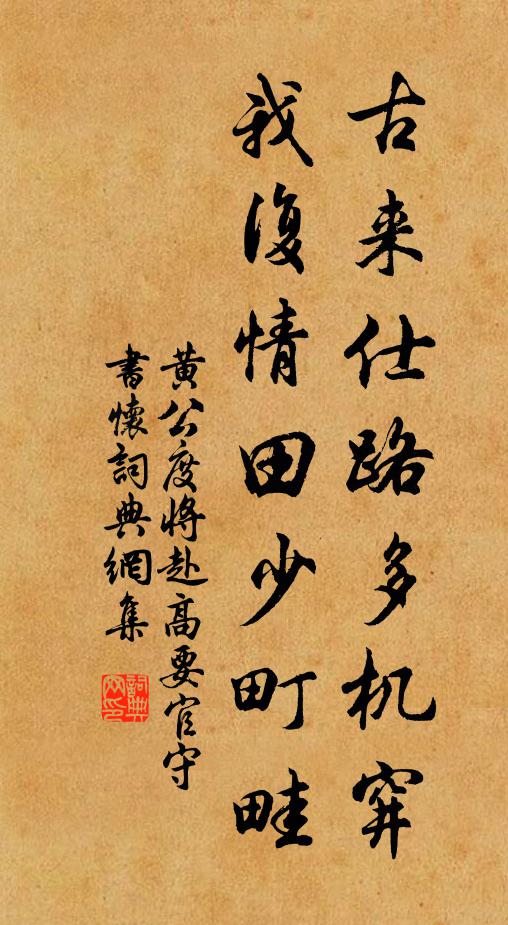 古来仕路多机穽
我復情田少町畦
黄公度将赴高要官守
書懷詞典網集
詞典网印